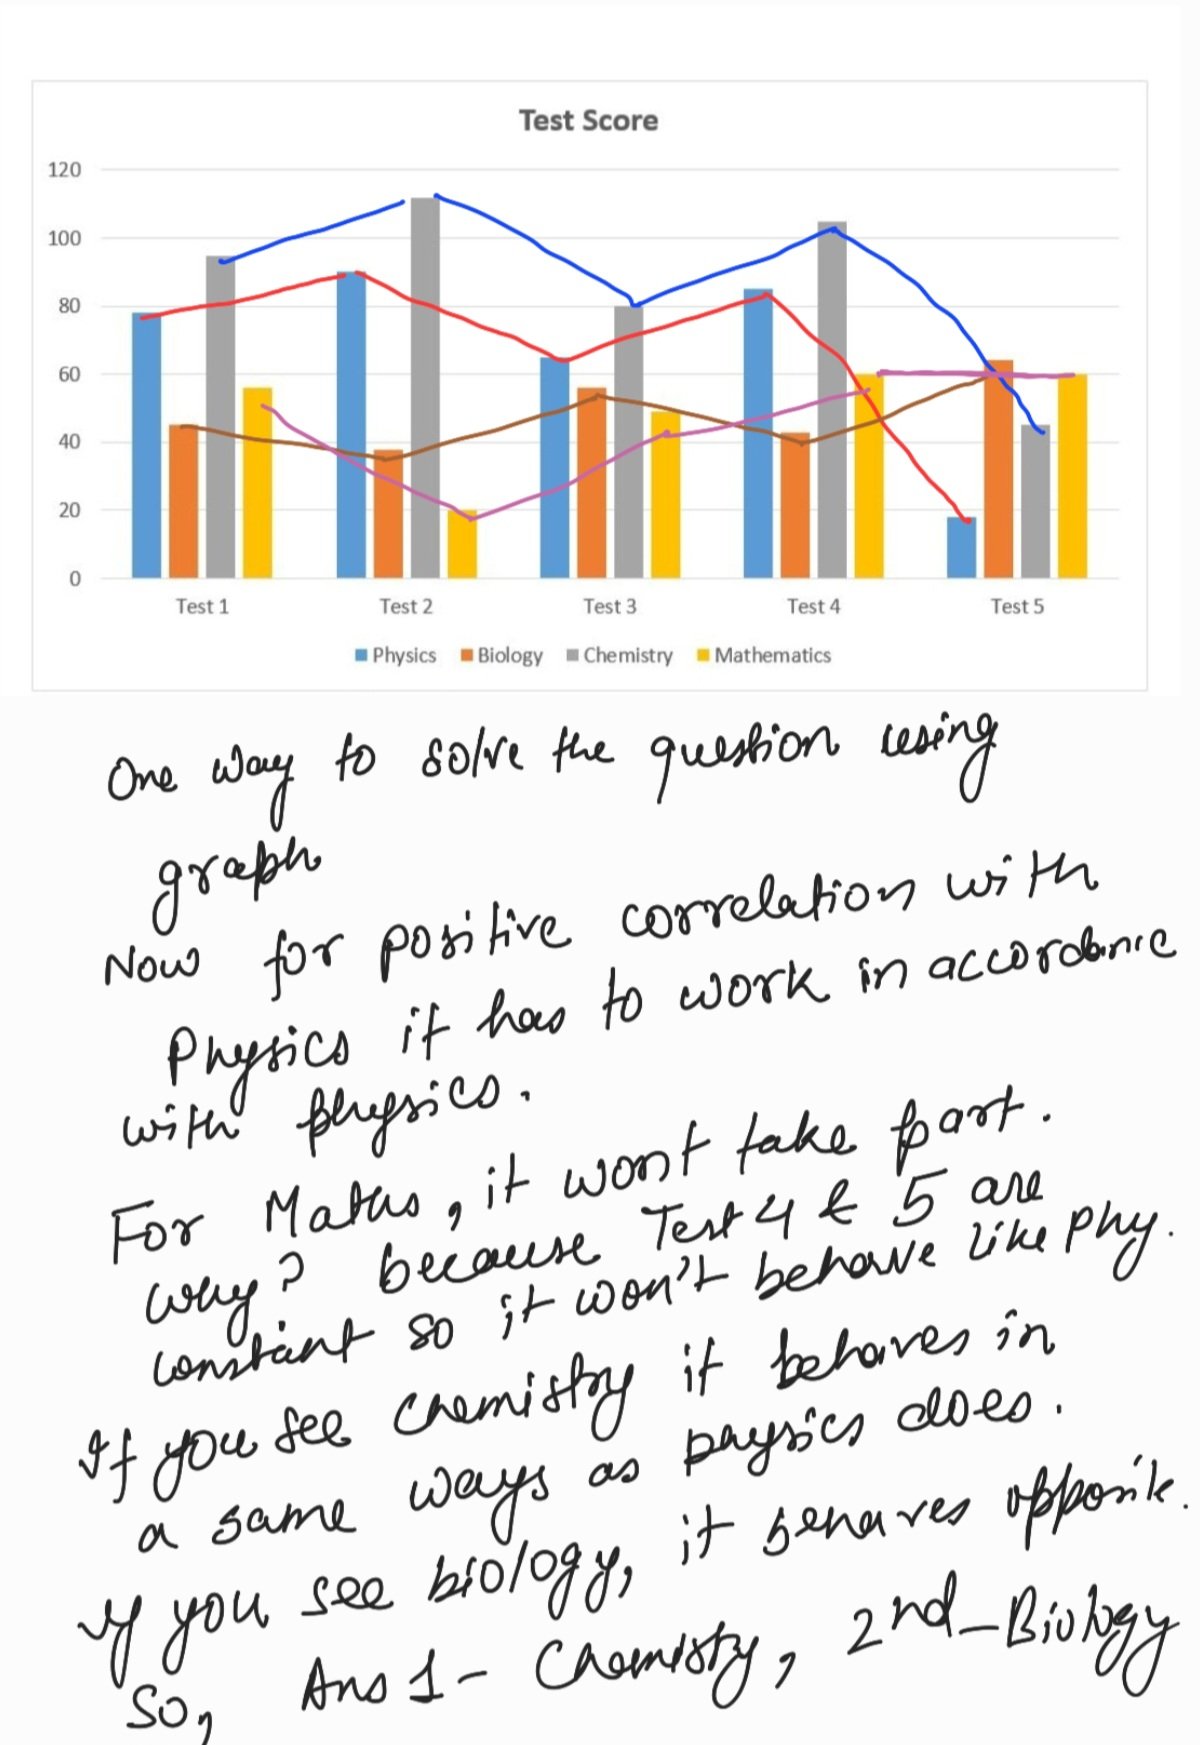 Test Score
120
100
80
60
40
20
0
Test 1 Test 2 Test 3 Test 4 Test 5
Physics Biology Chemistry Mathematics
One way to solve the question using
graph
Now for positive correlation with
Physics it has to work in accordance
with physics.
For Maths, it wont take part.
why? because Test 4 & 5 are
constant so it won't behave like phy.
If you see Chemistry it behaves in
a same ways as physics does.
If you see biology, it behaves opposite.
So, Ans 1 - Chemistry, 2nd - Biology